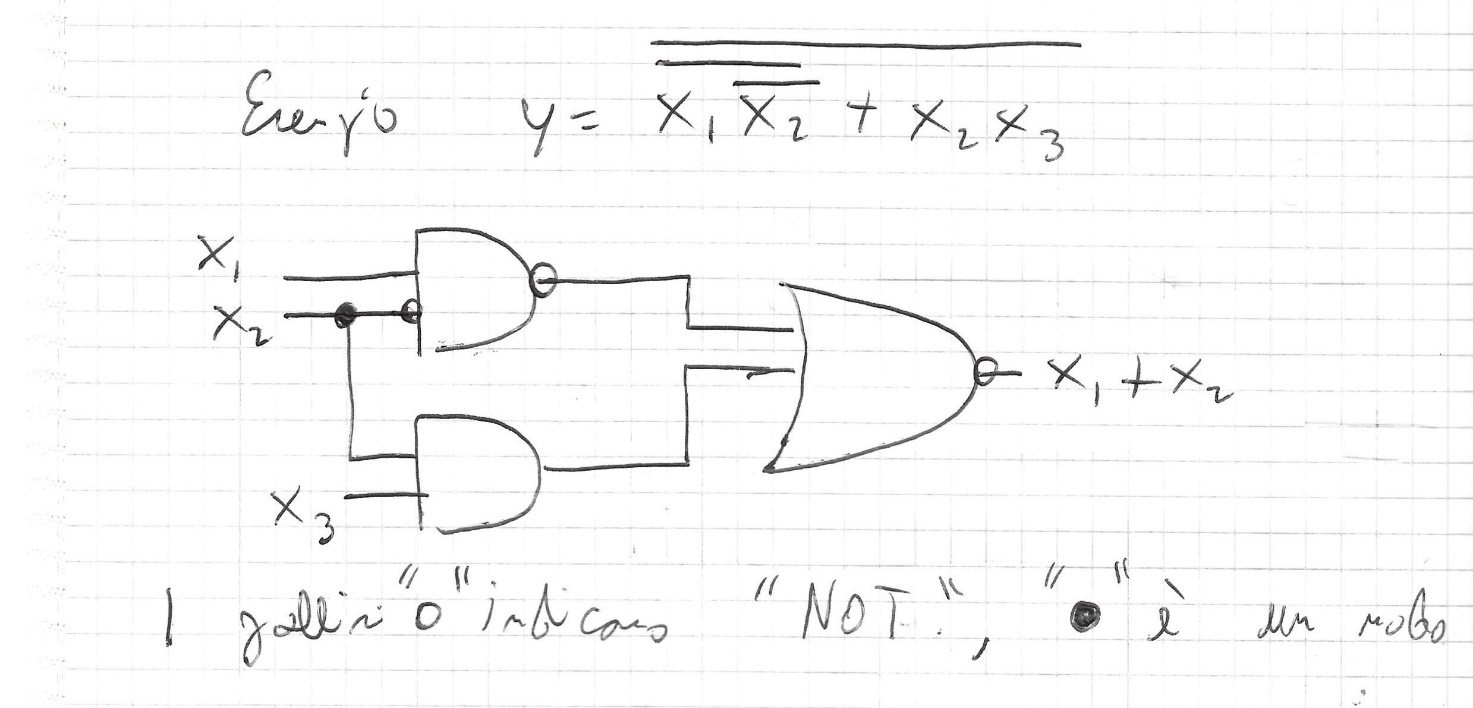 Esempio y = $\overline{\overline{x_1 \overline{x_2}} + x_2 x_3}$
x₁
x₂
x₁ + x₂
x₃
I pallini "o" indicano "NOT", "●" è un nodo